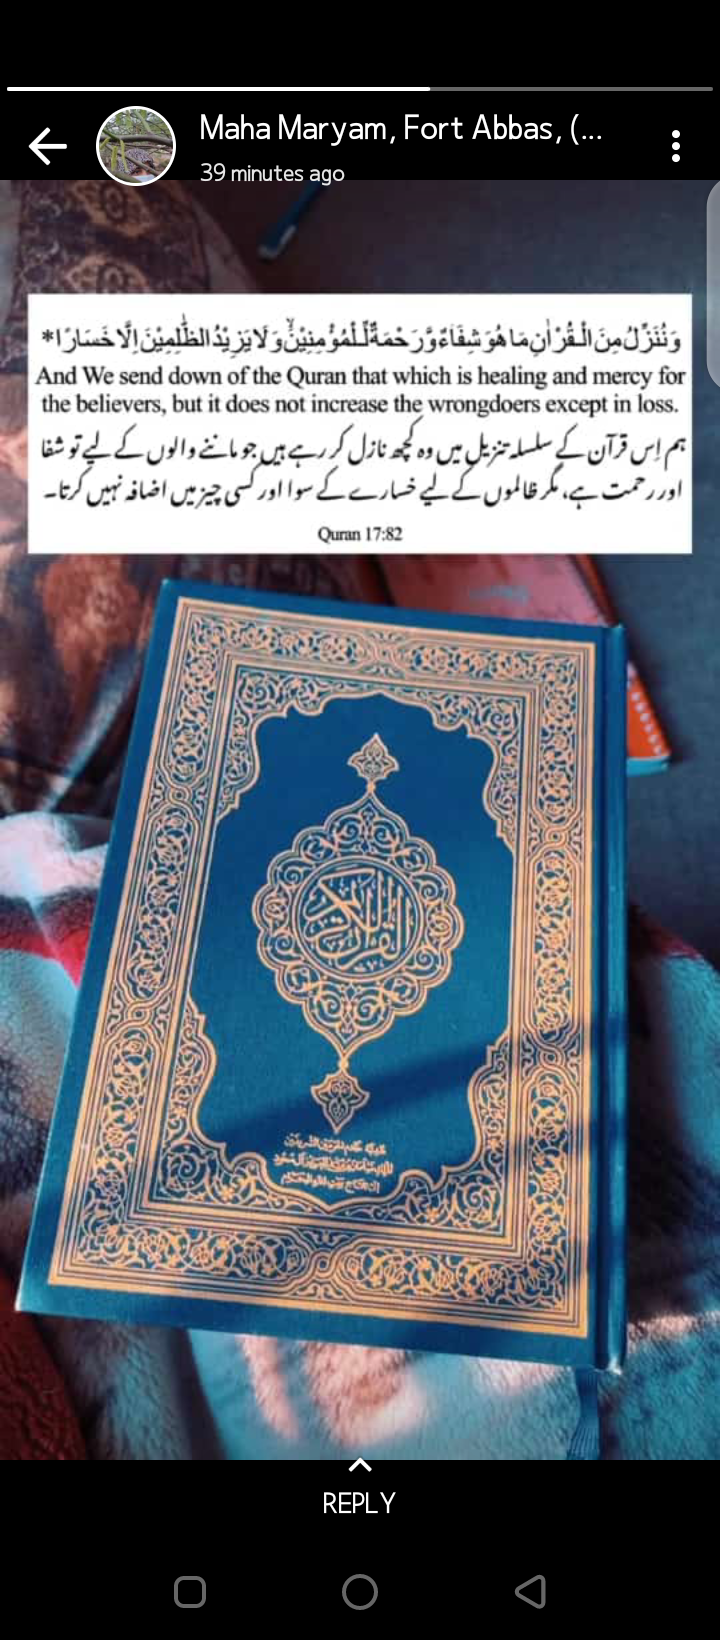 Maha Maryam, Fort Abbas, (...
39 minutes ago
وَنُنَزِّلُ مِنَ الْقُرْاٰنِ مَا هُوَ شِفَآءٌ وَّرَحْمَةٌ لِّلْمُؤْمِنِيْنَ ۙ وَلَا يَزِيْدُ الظّٰلِمِيْنَ اِلَّا خَسَارًا*
And We send down of the Quran that which is healing and mercy for
the believers, but it does not increase the wrongdoers except in loss.
ہم اِس قرآن کے سلسلہ تنزیل میں وہ کچھ نازل کر رہے ہیں جو ماننے والوں کے لیے تو شفا
اور رحمت ہے، مگر ظالموں کے لیے خسارے کے سوا اور کسی چیز میں اضافہ نہیں کرتا۔
Quran 17:82
القرآن الكريم
REPLY